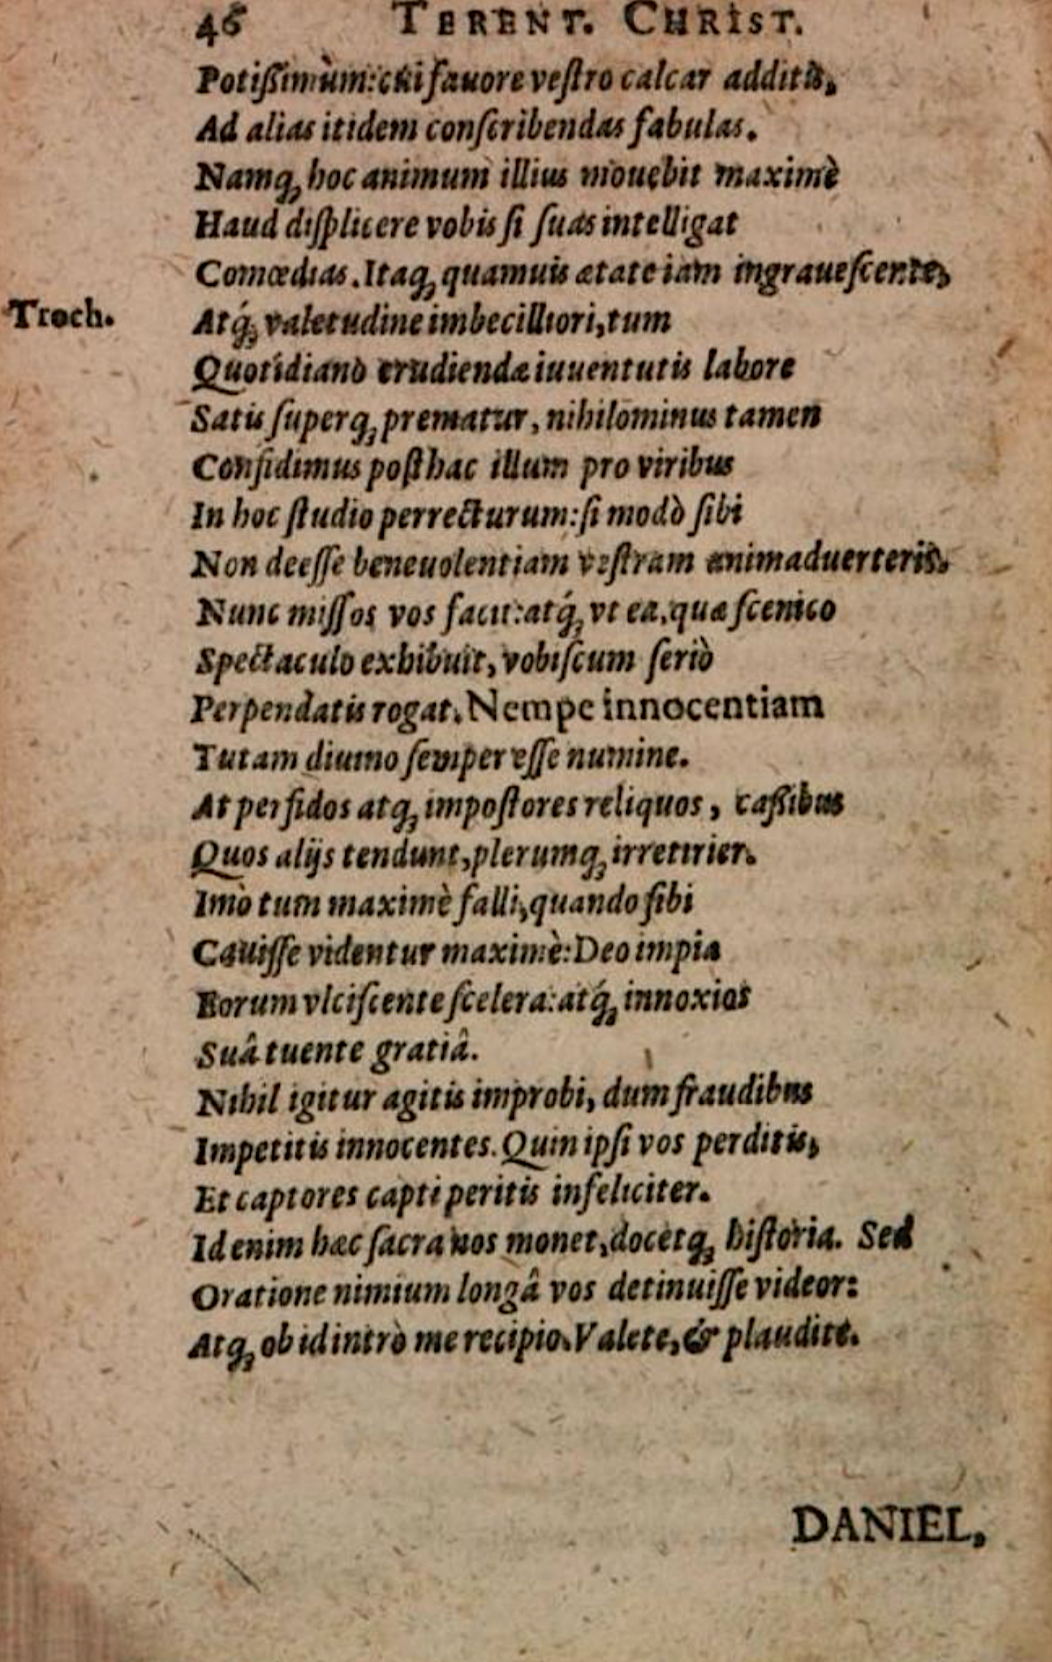 46 TERENT. CHRIST.
Potißimùm: cui fauore vestro calcar additis,
Ad alias itidem conscribendas fabulas.
Namq; hoc animum illius mouebit maximè
Haud displicere vobis si suas intelligat
Comœdias. Itaq; quamuis ætate iam ingrauescente,
Troch. Atq́; valetudine imbecilliori, tum
Quotidiano erudiendæ iuuentutis labore
Satis superq; prematur, nihilominus tamen
Confidimus posthac illum pro viribus
In hoc studio perrecturum: si modò sibi
Non deesse beneuolentiam vestram animaduerterit.
Nunc missos vos facit: atq́; vt ea, quæ scenico
Spectaculo exhibuit, vobiscum seriò
Perpendatis rogat. Nempe innocentiam
Tutam diuino semper esse numine.
At perfidos atq; impostores reliquos, caßibus
Quos alijs tendunt, plerumq; irretirier.
Imò tum maximè falli, quando sibi
Cauisse videntur maximè: Deo impia
Eorum vlciscente scelera: atq́; innoxios
Suâ tuente gratiâ.
Nihil igitur agitis improbi, dum fraudibus
Impetitis innocentes. Quin ipsi vos perditis,
Et captores capti peritis infeliciter.
Id enim hæc sacra nos monet, docetq; historia. Sed
Oratione nimium longâ vos detinuisse videor:
Atq; ob id intrò me recipio. Valete, & plaudite.
DANIEL,